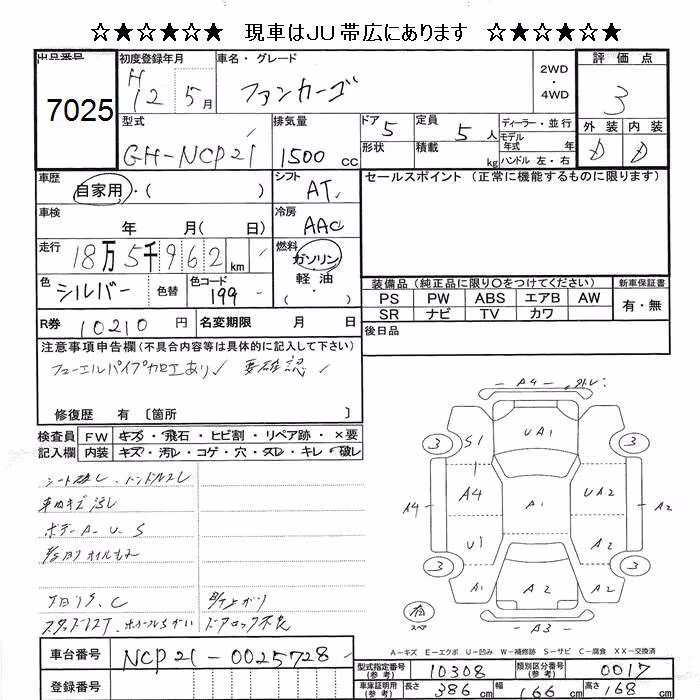 ☆★☆★☆★☆ 現車はJU帯広にあります ☆★☆★☆★☆
出品番号
7025
初度登録年月
H12 5月
車名・グレード
ファンカーゴ
2WD
・
4WD
評価点
3
外装 内装
D D
型式
GH-NCP21
排気量
1500 cc
ドア 5
形状
定員 5 人
積載 kg
ディーラー・並行
モデル年式 年
ハンドル 左・右
車歴
自家用・( )
シフト
AT
セールスポイント (正常に機能するものに限ります)
車検
年 月( 日)
冷房
AAC
走行
18万5千962 km
燃料
ガソリン
軽油
・( )
色
シルバー
色替
色コード
199
装備品 (純正品に限り〇をつけてください)
新車保証書
PS PW ABS エアB AW
SR ナビ TV カワ
有・無
R券 10210 円
名変期限 月 日
後日品
注意事項申告欄 (不具合内容等は具体的に記入して下さい)
フューエルパイプカロエあり 要確認
修復歴 有 〔箇所 〕
検査員記入欄
FW キズ・飛石・ヒビ割・リペア跡・×要
内装 キズ・汚レ・コゲ・穴・スレ・キレ・破レ
シート破レ・ハンドルスレ
車内キズ汚レ
ボデーA・U・S
下廻りサ、C
ドアロック不良
A4
3 S1 UA1 3
A4 A4 A1 UA2 A2
U1 A2
3 A1 A2 A2 3
有
スペア
A3
A-キズ E-エクボ U-凹み W-補修跡 S-サビ C-腐食 XX-交換済
車台番号
NCP21-0025728
登録番号
型式指定番号(参考) 10308
類別区分番号(参考) 0017
車庫証明用(参考) 長さ 386 cm 幅 166 cm 高さ 168 cm